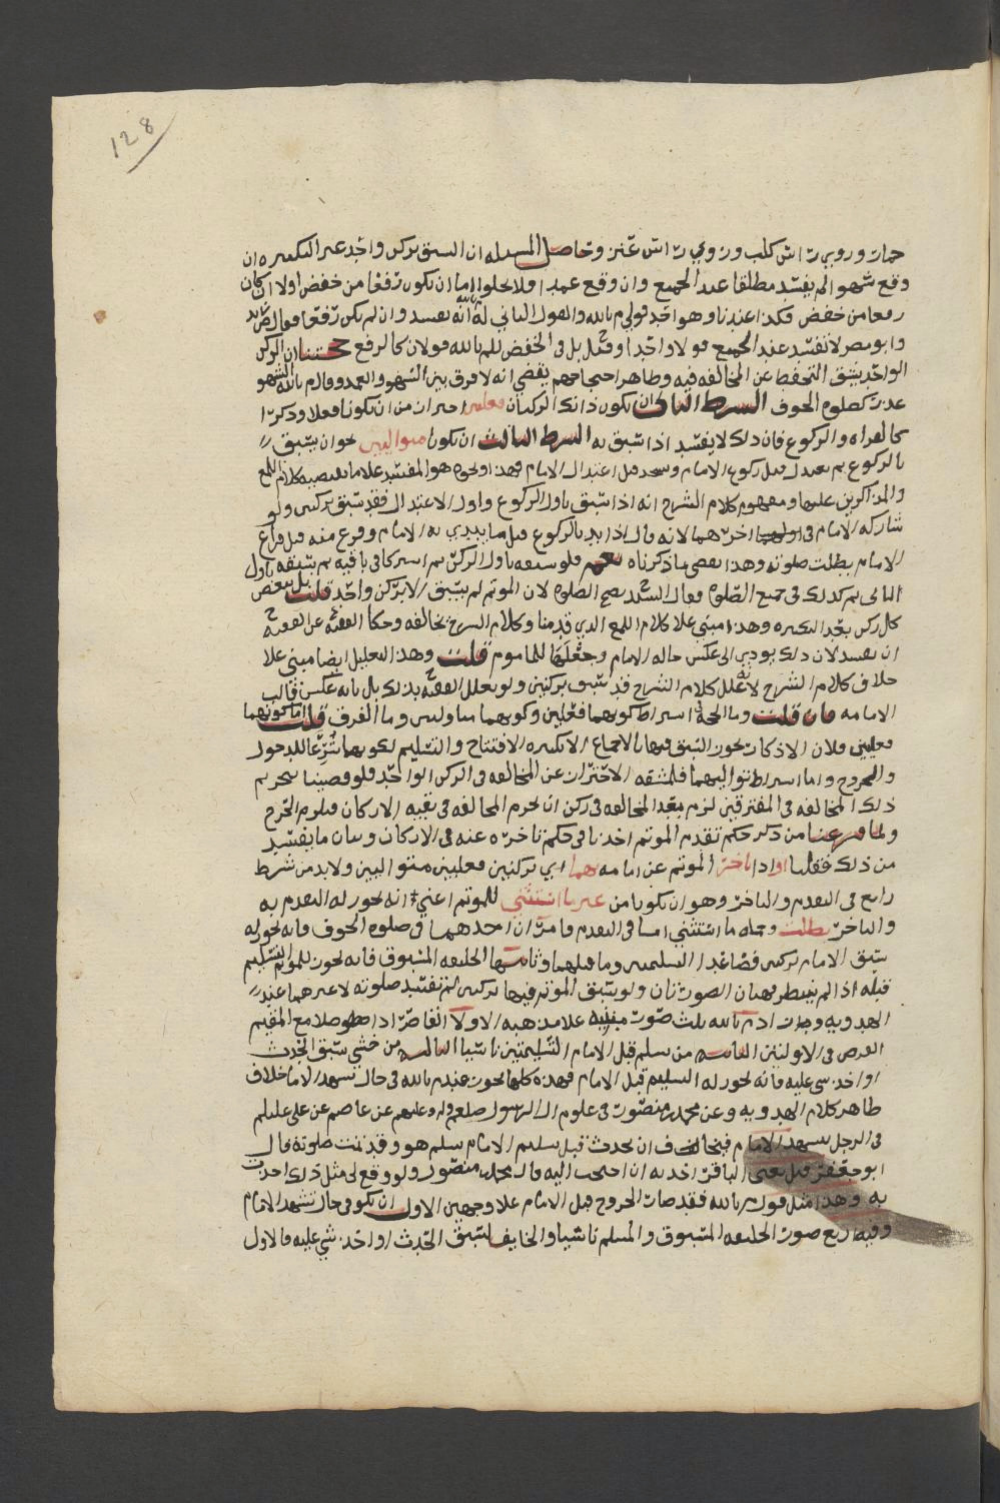 128
حمار وروي راس كلب وروي راس عنز وحاصل المسله ان السبق بركن واحد غير التكبيره ان
وقع سهوا لم يفسد مطلقا عند الجميع وان وقع عمدا فلا يخلوا اما ان يكون رفعا من خفض اولا ان كان
رفعا من خفض فكذا عندنا وهو احد قولي م بالله والقول الثاني له انه يفسد وان لم يكن رفعا فعال ص زيد
وابو مضر لا تفسد عند الجميع قولا واحدا وقيل بل في الخفض للم بالله قولان كالرفع حجتنا ان الركن
الواحد يشق التحفظ عن المخالفه فيه وظاهر احتجاجهم يقضي انه لا فرق بين السهو والعمد وقال م بالله السهو
عذر كصلوه الخوف الشرط الثاني ان يكون ذانك الركنان فعلين احتراز من ان يكونا فعلا وذكرا
كالقراه والركوع فان ذلك لا يفسد اذا سبق به الشرط الثالث ان يكونا متواليين نحو ان يسبق
بالركوع ثم يعتدل قبل ركوع الامام وسجد قبل اعتدال الامام فهذا ونحوه هو المفسد علا ما يقتضيه كلام اللمع
والمذاكرين عليها ومفهوم كلام الشرح انه اذا سبق باول الركوع واول الاعتدال فقد سبق بركنين ولو
شاركه الامام في اخرهما لانه قال اذا ابتدا بالركوع قبل ما يبتدي به الامام وفرغ منه قبل فراغ
الامام بطلت صلوته وهذا يقضي ما ذكرناه نعم فلو سبقه باول الركن ثم اشتركا في باقيه ثم سبقه باول
الثاني ثم كذلك في جميع الصلوه فقال السيد يصح الصلوه لان الموتم لم يسبق الا بركن واحد قلت بل ببعض
كل ركن بعد التكبيره وهذا مبني علا كلام اللمع الذي قدمنا وكلام الشرح يخالفه وحكا الفقيه ح عن الفقيه ح
ان يفسد لان ذلك يودي الى عكس حاله الامام وجعلها للماموم قلت وهذا التعليل ايضا مبني علا
خلاف كلام الشرح لانه علل كلام الشرح قد سبق بركنين ولو يعلل الفقيه ح بذلك بل بانه عكس قالب
الامامه فان قلت وما الحجة في اشتراط كونهما فعلين وكونهما متواليين وما الفرق قلت اما كونهما
فعلين فلان الاذكار يجوز السبق فيها بالاجماع الا تكبيره الافتتاح والتسليم لكونها شرعا للدخول
والخروج واما اشتراط تواليهما فلمشقه الاحتراز عن المخالفه في الركن الواحد فلو قضينا بتحريم
ذلك المخالفه في المفترقين لزم بعد المخالفه في ركن ان يحرم المخالفه في بقيه الاركان فيلزم الحرج
ولما فرغنا من ذكر حكم تقدم الموتم اخذنا في حكم تاخره عنه في الاركان وبيان ما يفسد
من ذلك فقلنا او اذا تاخر الموتم عن امامه بهما اي بركنين فعليين متواليين ولا بد من شرط
رابع في التقدم والتاخر وهو ان يكونا من غير ما استثني للموتم اعني انه يجوز له التقدم به
والتاخر بطلت وجمله ما استثني اما في التقدم فامران احدهما في صلوه الخوف فانه يجوز له
سبق الامام بركنين فصاعدا التسليمتين وما قبلهما وثانيها الخليفه المسبوق فانه يجوز للموتم التسليم
قبله اذا لم ينتظر فهاتان الصورتان ولو سبق الموتم فيها بركنين لم تفسد صلوته لا غيرهما عند
الهدويه وزاد م بالله ثلث صور مبنيه علا مذهبه الاولا القاصر اذا صلا مع المقيم
الفرض في الاولتين الثانيه من يسلم قبل الامام التسليمتين ناسيا الثالثه من خشي سبق الحدث
او اخذ شي عليه فانه يجوز له التسليم قبل الامام فهذه كلها تجوز عند م بالله في حال تشهد الامام خلاف
ظاهر كلام الهدويه وعن محمد بن منصور في علوم ال الرسول صلعم وعليهم عن عاصم عن علي عليلم
في الرجل يتشهد الامام فيخاف ان يحدث قبل تسليم الامام سلم هو وقد تمت صلوته قال
ابو جعفر قيل يعني الباقر اخذ به ان احتجت اليه قال محمد بن منصور ولو وقع لي مثل ذلك اخذت
به وهذا مثل قول م بالله فقد صار الخروج قبل الامام علا وجهين الاول ان يكون في حال تشهد الامام
وفيه اربع صور الخليفه المسبوق والمسلم ناسيا والخايف لسبق الحدث او اخذ شي عليه والاول